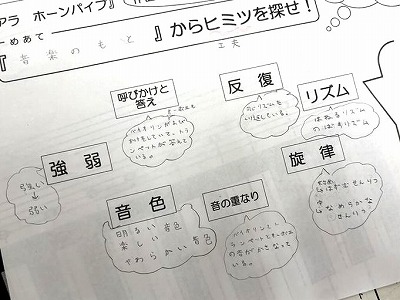 アラ ホーンパイプ』
めあて
『音楽のもと 』からヒミツを探せ！
工夫
呼びかけと
答え
バイオリンがよび
かけをしていて、トラ
ンペットが答えて
いる。
反復
リズム
はねるリズム
強弱
強い
↓
弱い
音色
明るい音色
楽しい
やわらかい音色
音の重なり
バイオリンとト
の音がかさなって
いる。
旋律
はずむせんりつ
なめらかな
せんりつ